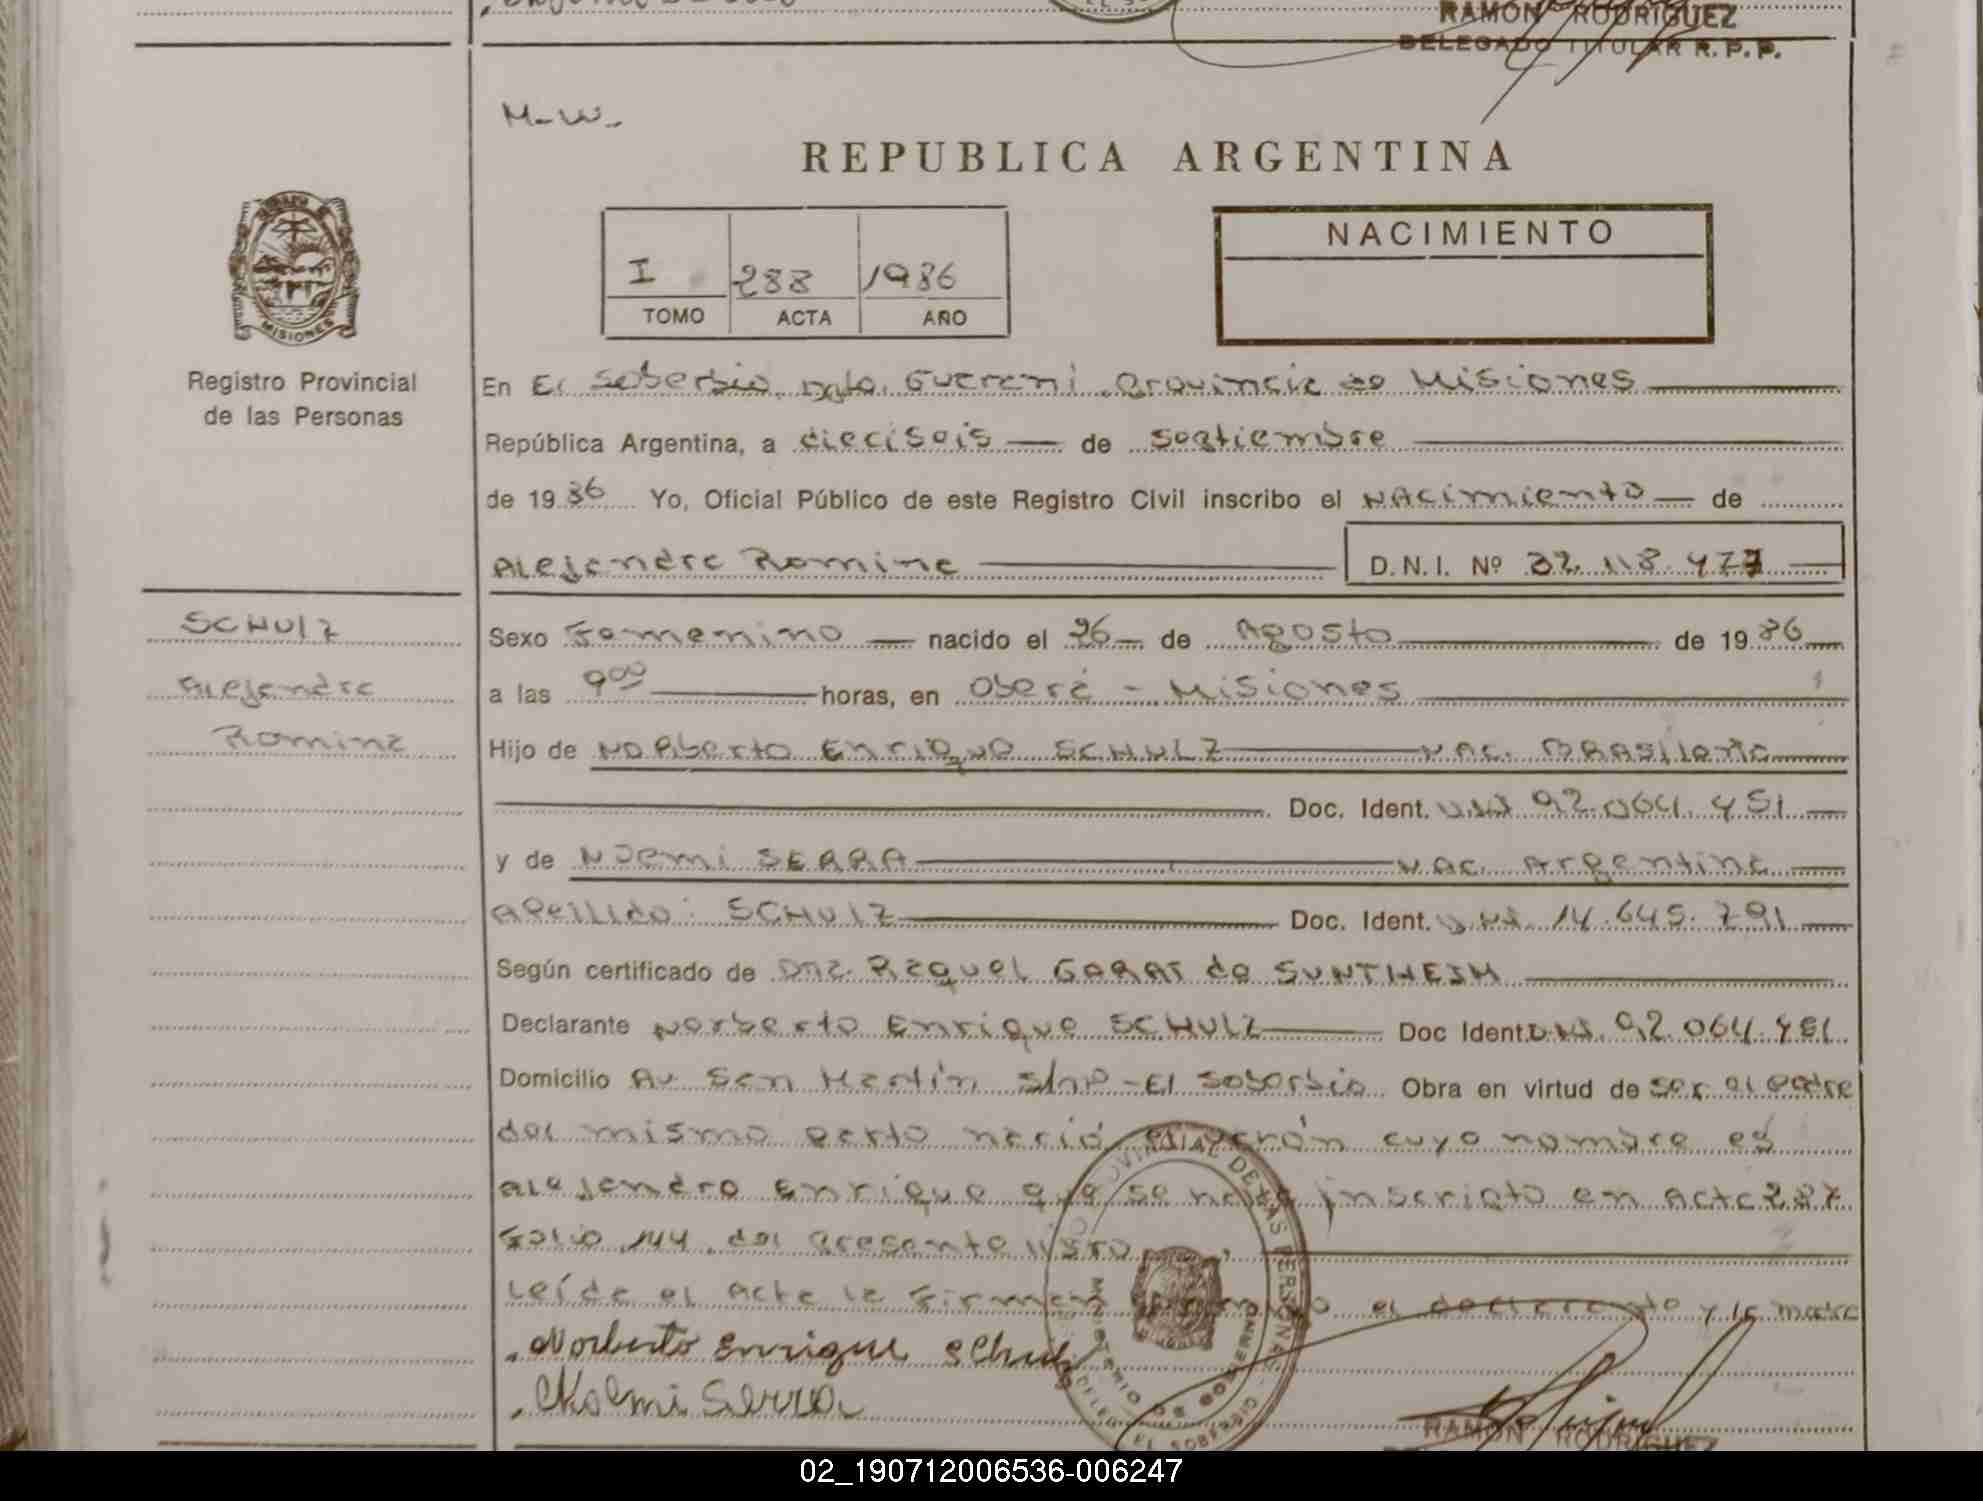 RAMON RODRIGUEZ
DELEGADO TITULAR R.P.P.
M-W-
REPUBLICA ARGENTINA
I 288 1986
TOMO ACTA AÑO
NACIMIENTO
MISIONES
Registro Provincial
de las Personas
En El Soberbio, Dpto. Guarani, Provincia de Misiones
República Argentina, a dieciseis de septiembre
de 1986 Yo, Oficial Público de este Registro Civil inscribo el NAcimiento de
Alejandra Romina D.N.I. Nº 32.118.477
SCHULZ
Alejandra
Romina
Sexo Femenino nacido el 26 de Agosto de 1986
a las 9⁰⁰ horas, en Oberá - Misiones
Hijo de NORberto Enrique SCHULZ NAC. BRASileña
Doc. Ident. D.N.I. 92.064.451
y de NOemi SERRA NAC. Argentina
apellido: SCHULZ Doc. Ident. D.N.I. 14.645.791
Según certificado de Dra. Raquel GARAY de SUNTHEIM
Declarante Norberto Enrique SCHULZ Doc Ident. D.N.I. 92.064.451
Domicilio Av San Martín s/nº - El Soberbio Obra en virtud de ser el padre
del mismo parto nació el varón cuyo nombre es
Alejandro Enrique que se halla inscripto en Acta 287
Folio 144 del presente libro
Leída el acta la firman el declarante y la madre
Norberto Enrique Schulz
Noemi Serra
RAMON RODRIGUEZ
02_190712006536-006247